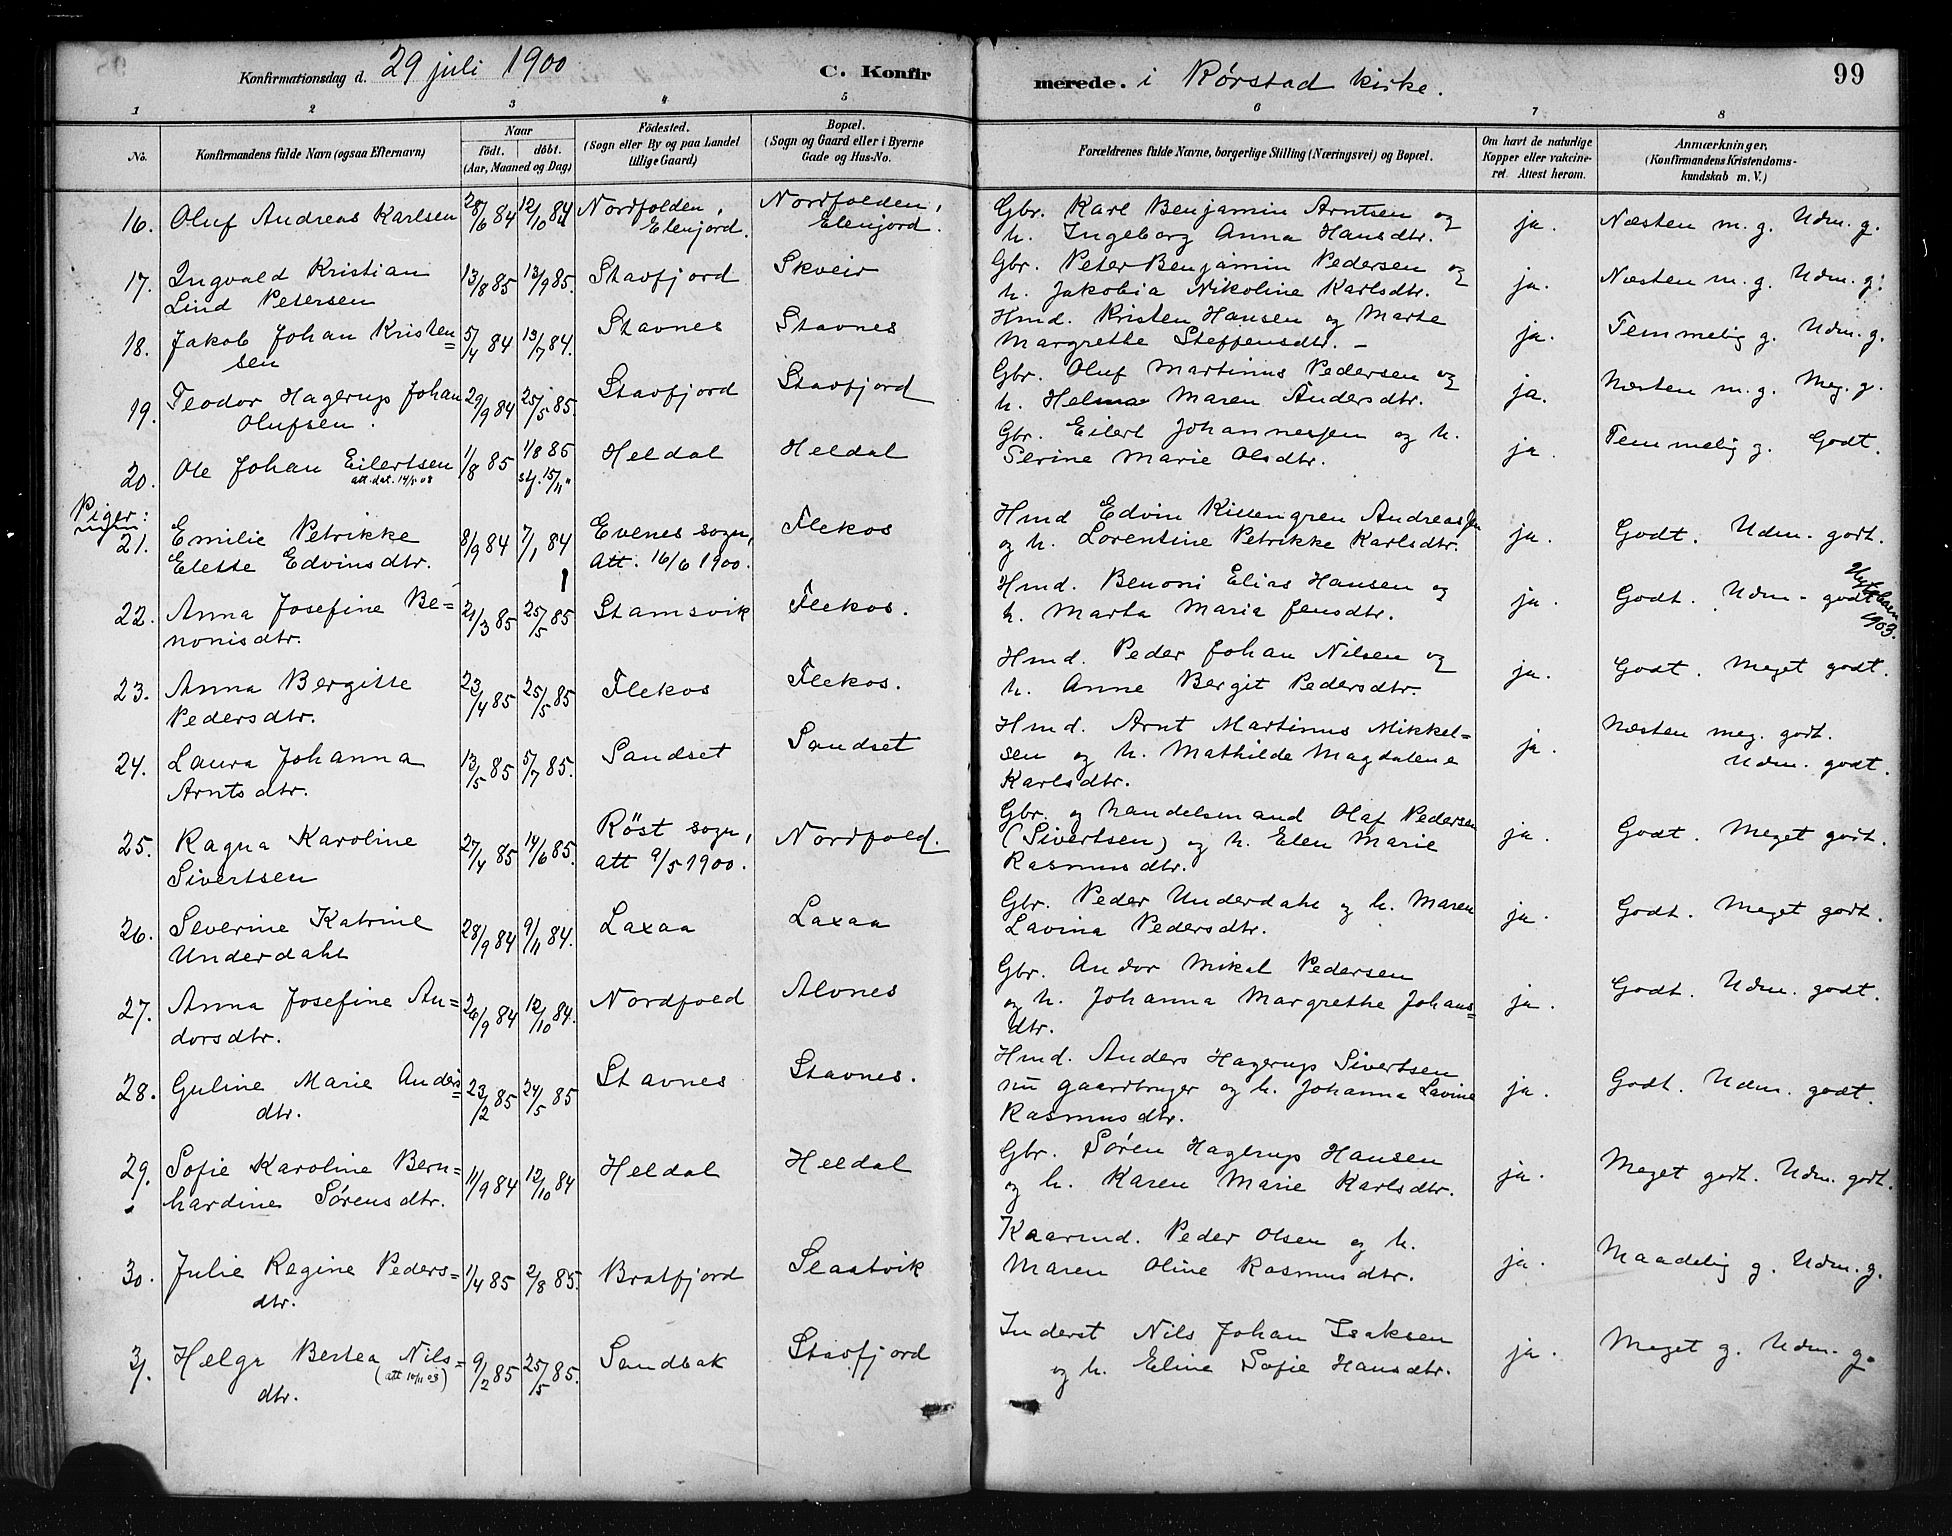 Konfirmationsdag d. 29 juli 1900 C. Konfirmerede. i Rørstad kirke. 99
1 2 3 4 5 6 7 8
No. Konfirmandens fulde Navn (ogsaa Efternavn) Naar født. døbt. (Aar, Maaned og Dag) Fødested. (Sogn eller By og paa Landet tillige Gaard) Bopæl. (Sogn og Gaard eller i Byerne Gade og Hus-No.
Forældrenes fulde Navne, borgerlige Stilling (Næringsvei) og Bopæl. Om havt de naturlige Kopper eller vakcineret. Attest herom. Anmærkninger, (Konfirmandens Kristendomskundskab m. V.)
16. Oluf Andreas Karlsen 28/6 84 12/10 84 Nordfolden, Elenjord. Nordfolden, Elenjord. Gbr. Karl Benjamin Arntsen og
h. Ingeborg Anna Hansdtr. ja. Næsten m. g. Udm. g.
17. Ingvald Kristian 13/8 85 13/9 85. Stavfjord Skveir Gbr. Peter Benjamin Pedersen og
Lind Petersen h. Jakobia Nikoline Karlsdtr. ja. Næsten m. g. Udm. g.
18. Jakob Johan Kristen= 5/4 84 13/7 84. Stavnes Stavnes Hmd. Kristen Hansen og Marte
sen Margrethe Steffensdtr. – ja. Temmelig g. Udm. g.
19. Teodor Hagerup Johan 29/9 84 25/5 85. Stavfjord Stavfjord Gbr. Oluf Martinus Pedersen og
Olufsen. h. Helma Maren Andersdtr. ja. Næsten m. g. Meg. g.
20. Ole Johan Eilertsen 1/8 85 1/8 85 Heldal Heldal Gbr. Eilert Johannessen og h.
att. dat. 14/1 08 stf. 15/11 " Serine Marie Olsdtr. ja. Temmelig g. Godt.
Piger:
21. Emilie Petrikke 8/9 84 7/1 84 Evenes sogn, Flekos Hmd Edvin Killengren Andreassen
Elette Edvinsdtr. Att. 16/6 1900. og h. Lorentine Petrikke Karlsdtr. ja. Godt. Udm. godt.
22. Anna Josefine Be= 21/3 85 25/5 85 Stamsvik Flekos. Hmd. Benoni Elias Hansen og
nonisdtr. h. Marta Maria Jensdtr. ja. Godt. Udm. godt 1903.
23. Anna Bergitte 23/4 85 25/5 85 Flekos Flekos. Hmd. Peder Johan Nilsen og
Pedersdtr. h. Anne Bergit Pedersdtr. ja. Godt. Meget godt.
24. Laura Johanna 13/5 85 5/7 85. Sandset Sandset Hmd. Arnt Martinus Mikkel=
Arntsdtr. sen og h. Mathilde Magdalene ja. Næsten meg. godt.
Karlsdtr. Udm. godt.
25. Ragna Karoline 27/4 85 14/6 85. Röst sogn, Nordfold. Gbr. og handelsmand Olaf Pedersen
Sivertsen att 9/5 1900. (Sivertsen) og h. Elen Marie ja. Godt. Meget godt.
Rasmusdtr.
26. Severine Katrine 28/9 84 9/11 84. Laxaa Laxaa Gbr. Peder Underdahl og h. Maren
Underdahl Lavina Pedersdtr. ja. Godt. Meget godt.
27. Anna Josefine An= 26/9 84 12/10 84. Nordfold Alvnes Gbr. Andor Mikal Pedersen
dorsdtr. og h. Johanna Margrethe Johans= ja. Godt. Udm. godt.
dtr.
28. Guline Marie Anders= 23/2 85 24/5 85 Stavnes Stavnes. Hmd. Anders Hagerup Sivertsen
dtr. nu gaardbruger og h. Johanna Lavine ja. Godt. Udm. godt.
Rasmusdtr.
29. Sofie Karoline Bern= 11/9 84 12/10 84 Heldal Heldal Gbr. Søren Hagerup Hansen
hardine Sørensdtr. og h. Karen Marie Karlsdtr. ja. Meget godt. Udm. godt.
30. Julie Regine Peders= 11/4 85 2/8 85. Bratfjord Slaatvik Kaarmd. Peder Olsen og h.
dtr. Maren Oline Rasmusdtr. ja. Maadelig g. Udm. g.
31. Helga Bertea Nils= 9/2 85 25/5 85. Sandbak Stavfjord Inderst Nils Johan Isaksen
(att 10/11 03) dtr. og h. Eline Sofie Hansdtr. ja. Meget g. Udm. g.